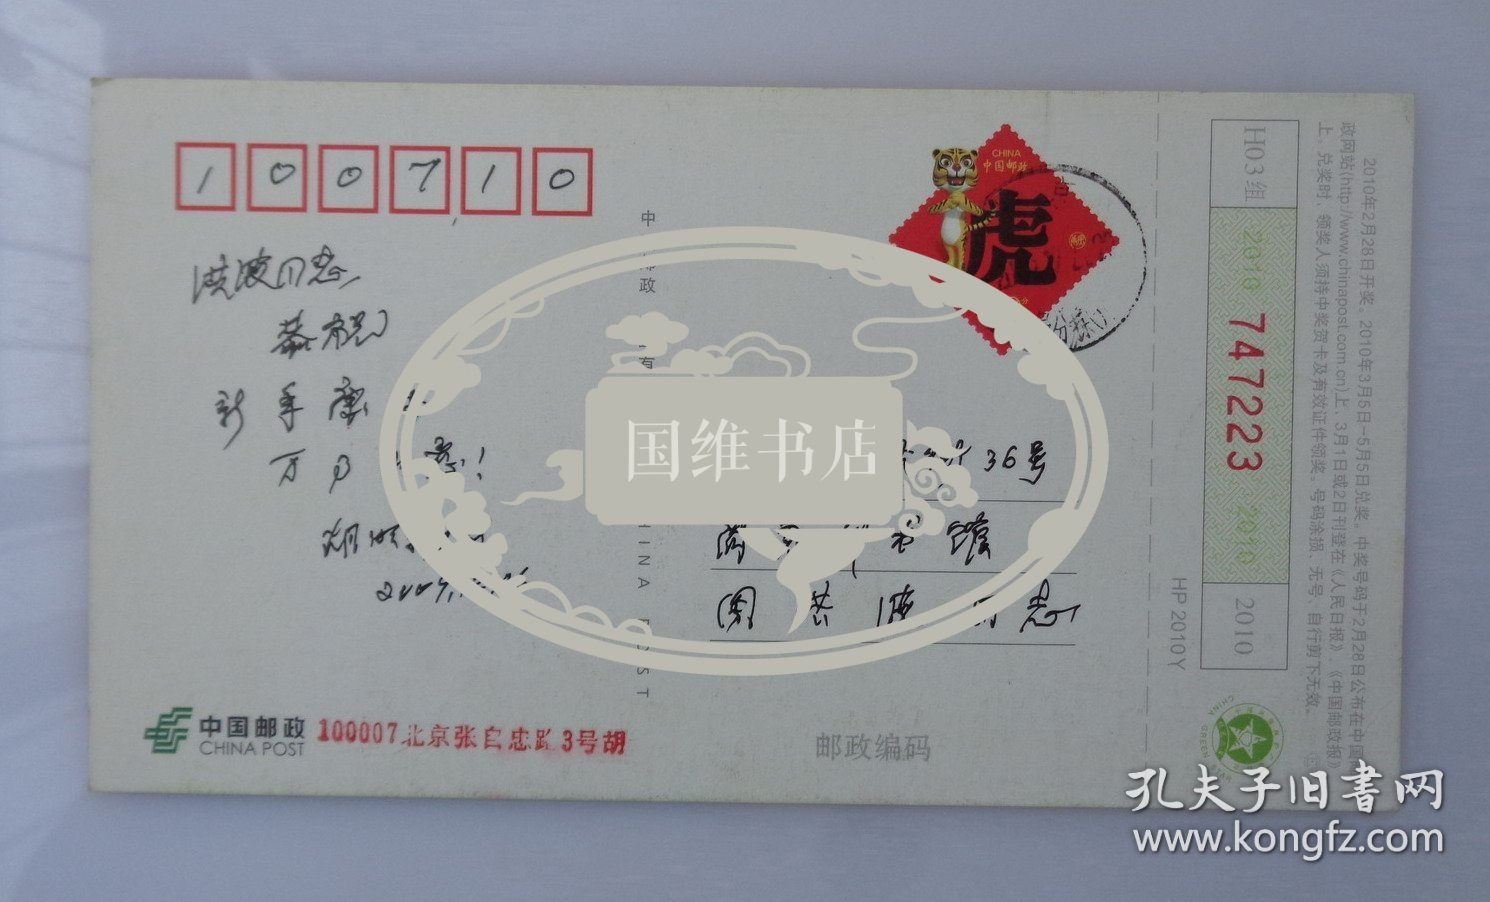 100710
洪波同志
恭祝
新年康
万
2009
中 邮政 有
CHINA POST
CHINA
中国邮政
虎
36号
商 书馆
周洪波同志
国维书店
中国邮政
CHINA POST
100007北京张自忠路3号胡
邮政编码
HP 2010Y
H03组
2010 747223 2010
2010
2010年2月28日开奖。2010年3月5日-5月5日兑奖。中奖号码于2月28日公布在中国
政网站(http://www.chinapost.com.cn)上，3月1日或2日刊登在《人民日报》《中国邮政报》
上。兑奖时，领奖人须持中奖贺卡及有效证件领奖。号码涂损、无号、自行剪下无效。
孔夫子旧书网
www.kongfz.com